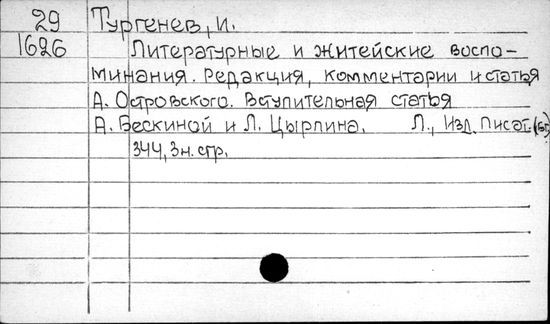 29 Тургенев, И.
1626 Литературные и житейские воспо-
минания. Редакция, комментарии и статья
А. Островского. Вступительная статья
А. Бескиной и Л. Цырлина. Л., Изд. Писат. (Бг)
344, 3 н. стр.